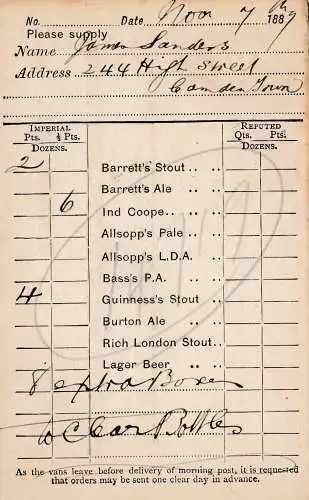 No. Date Nov 7th 1889
Please supply
Name James Sanders
Address 244 High Street
Camden Town
IMPERIAL REPUTED
Pts. ½ Pts. Qts. Pts.
DOZENS. DOZENS.
2 Barrett's Stout .. ..
Barrett's Ale .. ..
6 Ind Coope.. .. ..
Allsopp's Pale .. ..
Allsopp's L.D.A. ..
Bass's P.A. .. ..
4 Guinness's Stout ..
Burton Ale .. ..
Rich London Stout..
Lager Beer .. ..
8 extra Boxes
to Clear Bottles
As the vans leave before delivery of morning post, it is requested
that orders may be sent one clear day in advance.